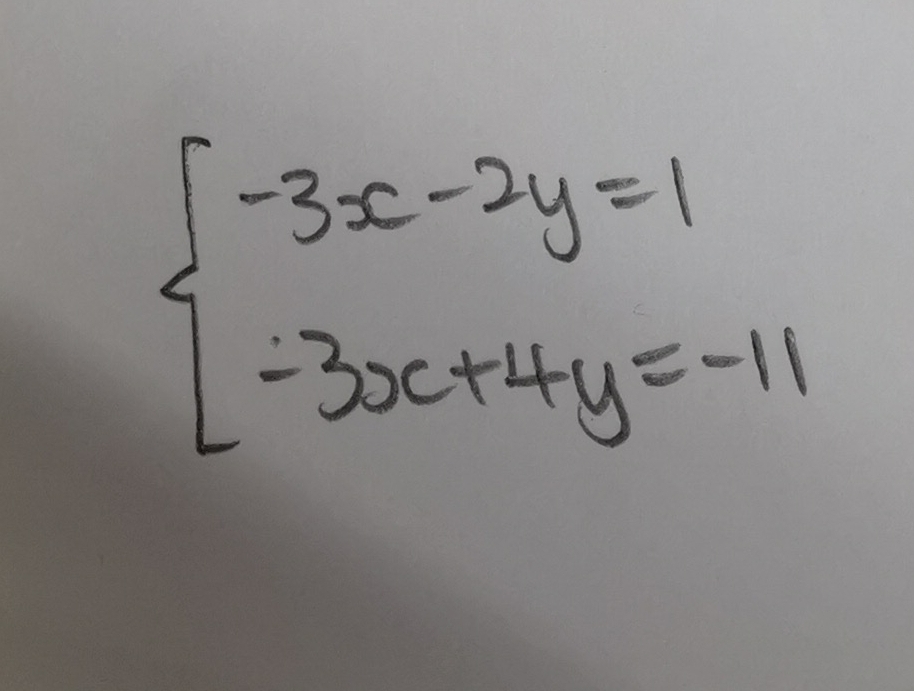 -3x-2y=1
-3x+4y=-11